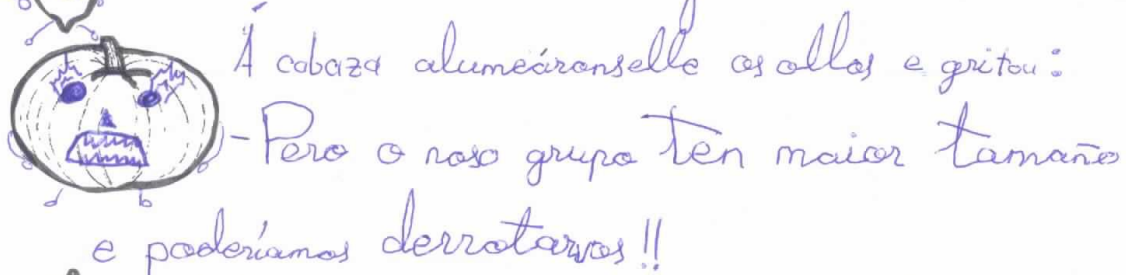 Á cabaza alumeáronselle os ollos e gritou:
-Pero o noso grupo ten maior tamaño
e poderíamos derrotarvos!!